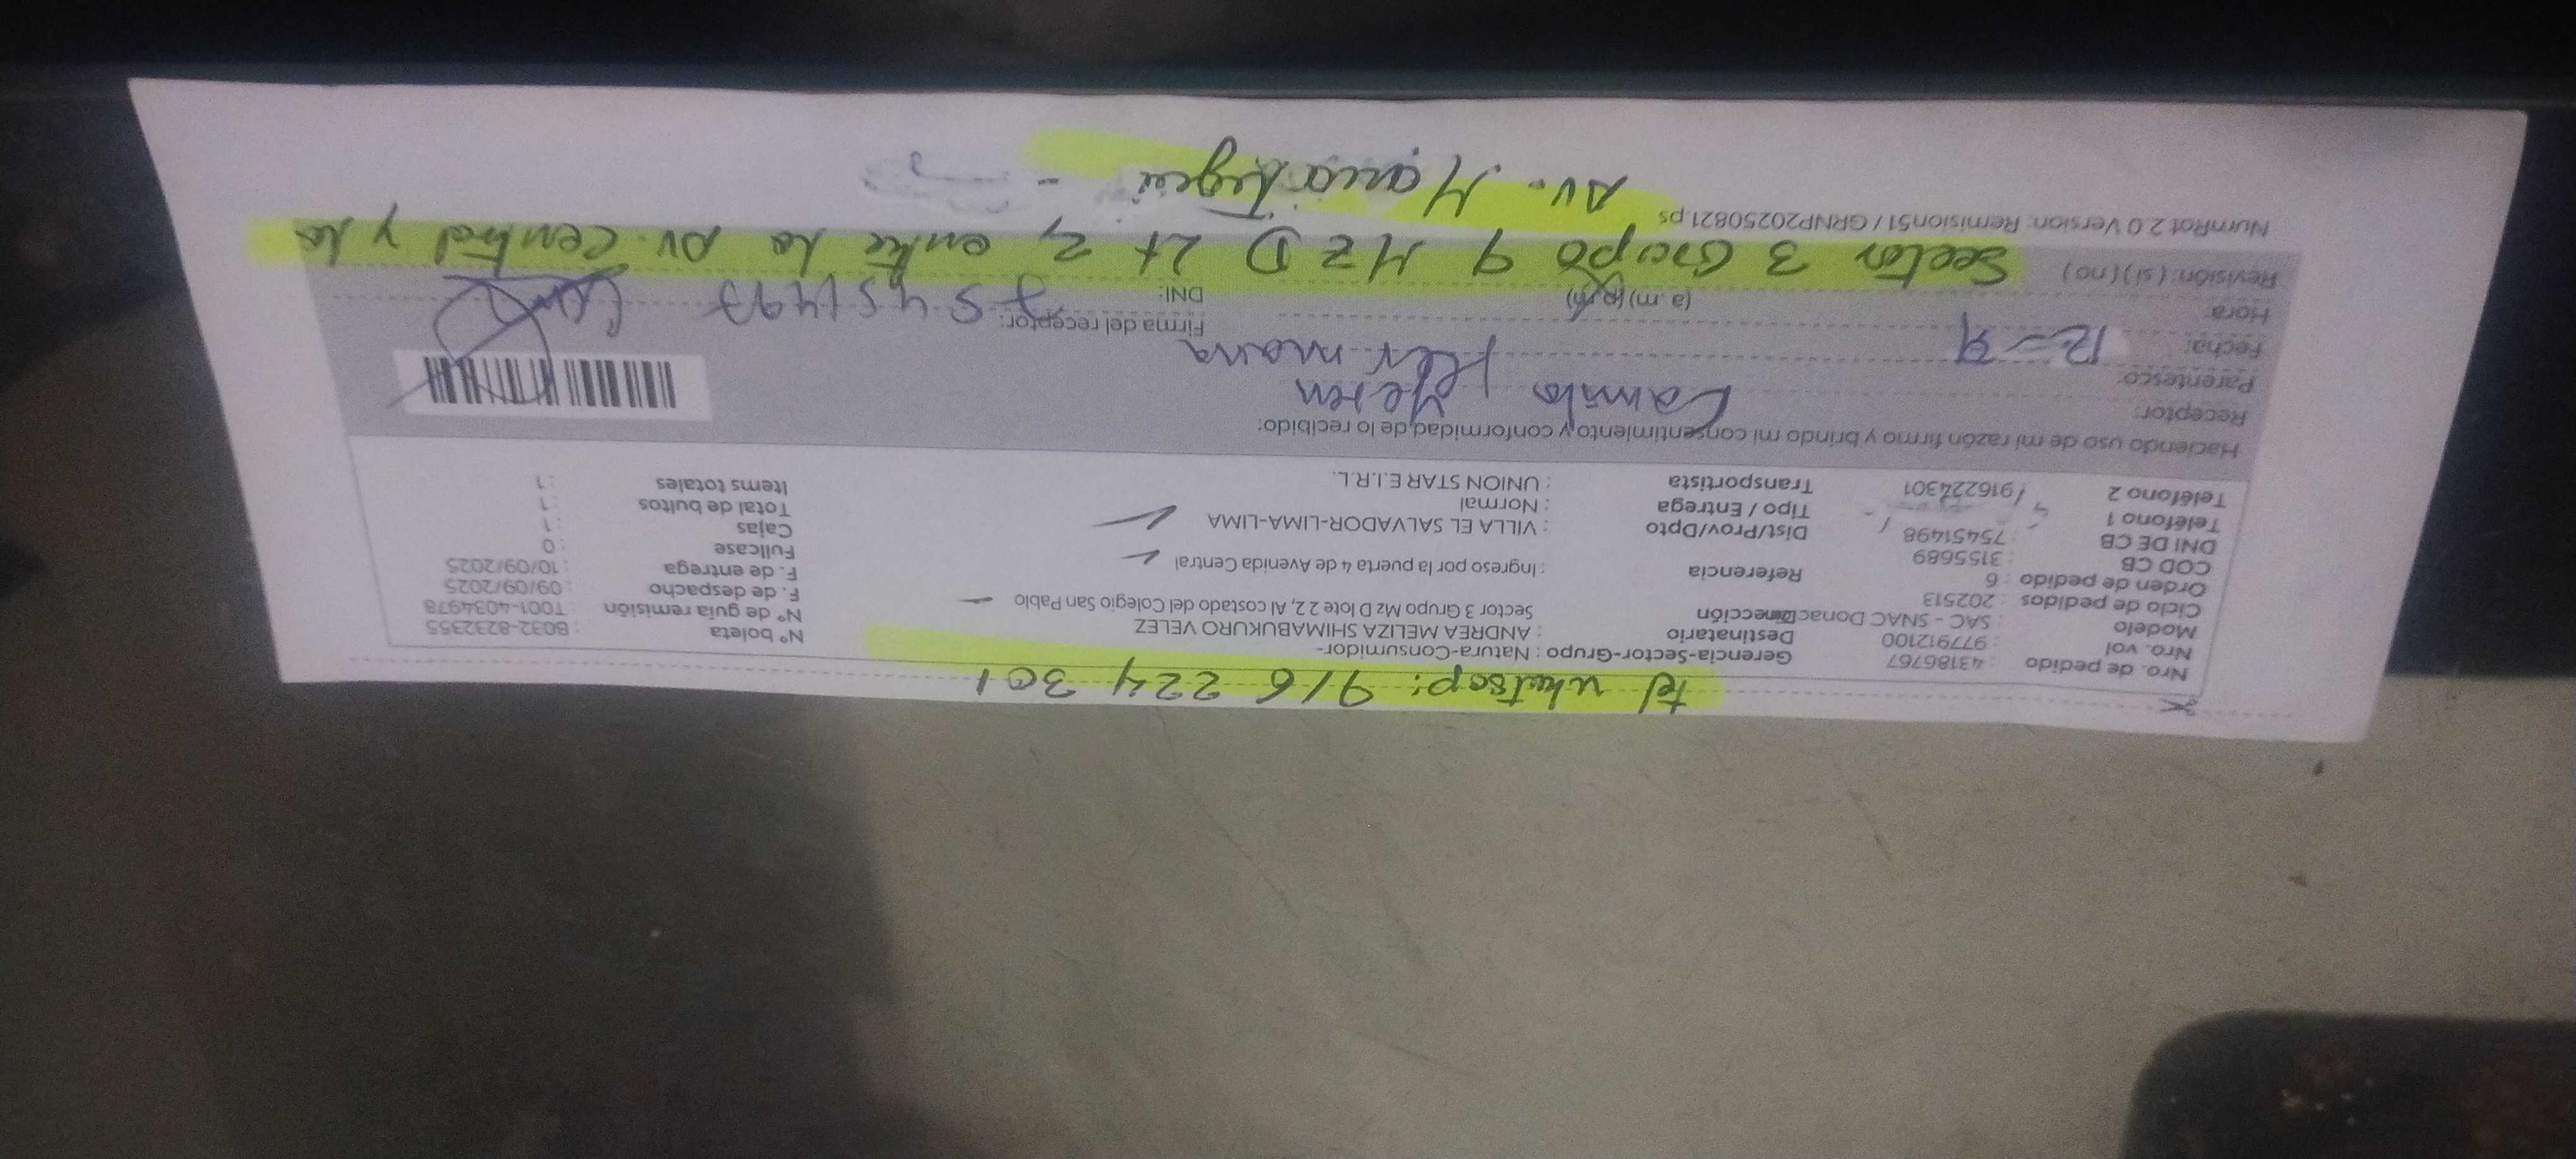 tel whatsap: 916 224 301
Nro. de pedido : 43186767
Nro. vol : 977912100
Modelo : SAC - SNAC Donac
Ciclo de pedidos : 202513
Orden de pedido : 6
COD CB : 3155689
DNI DE CB : 75451498
Teléfono 1
Teléfono 2 916224301
Gerencia-Sector-Grupo : Natura-Consumidor-
Destinatario : ANDREA MELIZA SHIMABUKURO VELEZ
Dirección Sector 3 Grupo Mz D lote 2 2, Al costado del Colegio San Pablo
Referencia : Ingreso por la puerta 4 de Avenida Central
Dist/Prov/Dpto : VILLA EL SALVADOR-LIMA-LIMA
Tipo / Entrega : Normal
Transportista : UNION STAR E.I.R.L.
N° boleta : B032-8232355
N° de guía remisión : T001-4034978
F. de despacho : 09/09/2025
F. de entrega : 10/09/2025
Fullcase : 0
Cajas : 1
Total de bultos : 1
Items totales : 1
Haciendo uso de mi razón firmo y brindo mi consentimiento y conformidad de lo recibido:
Receptor: Camila
Parentesco:
Fecha: 12-9
Hora: (a.m) (p.m)
Firma del receptor:
DNI: 75451497
Revisión: (si) (no)
Sector 3 Grupo 9 MZ D Lt 2, entre la Av. Central y la
NumRot 2.0 Version: Remision51 / GRNP20250821.ps
Av. Mariategui -